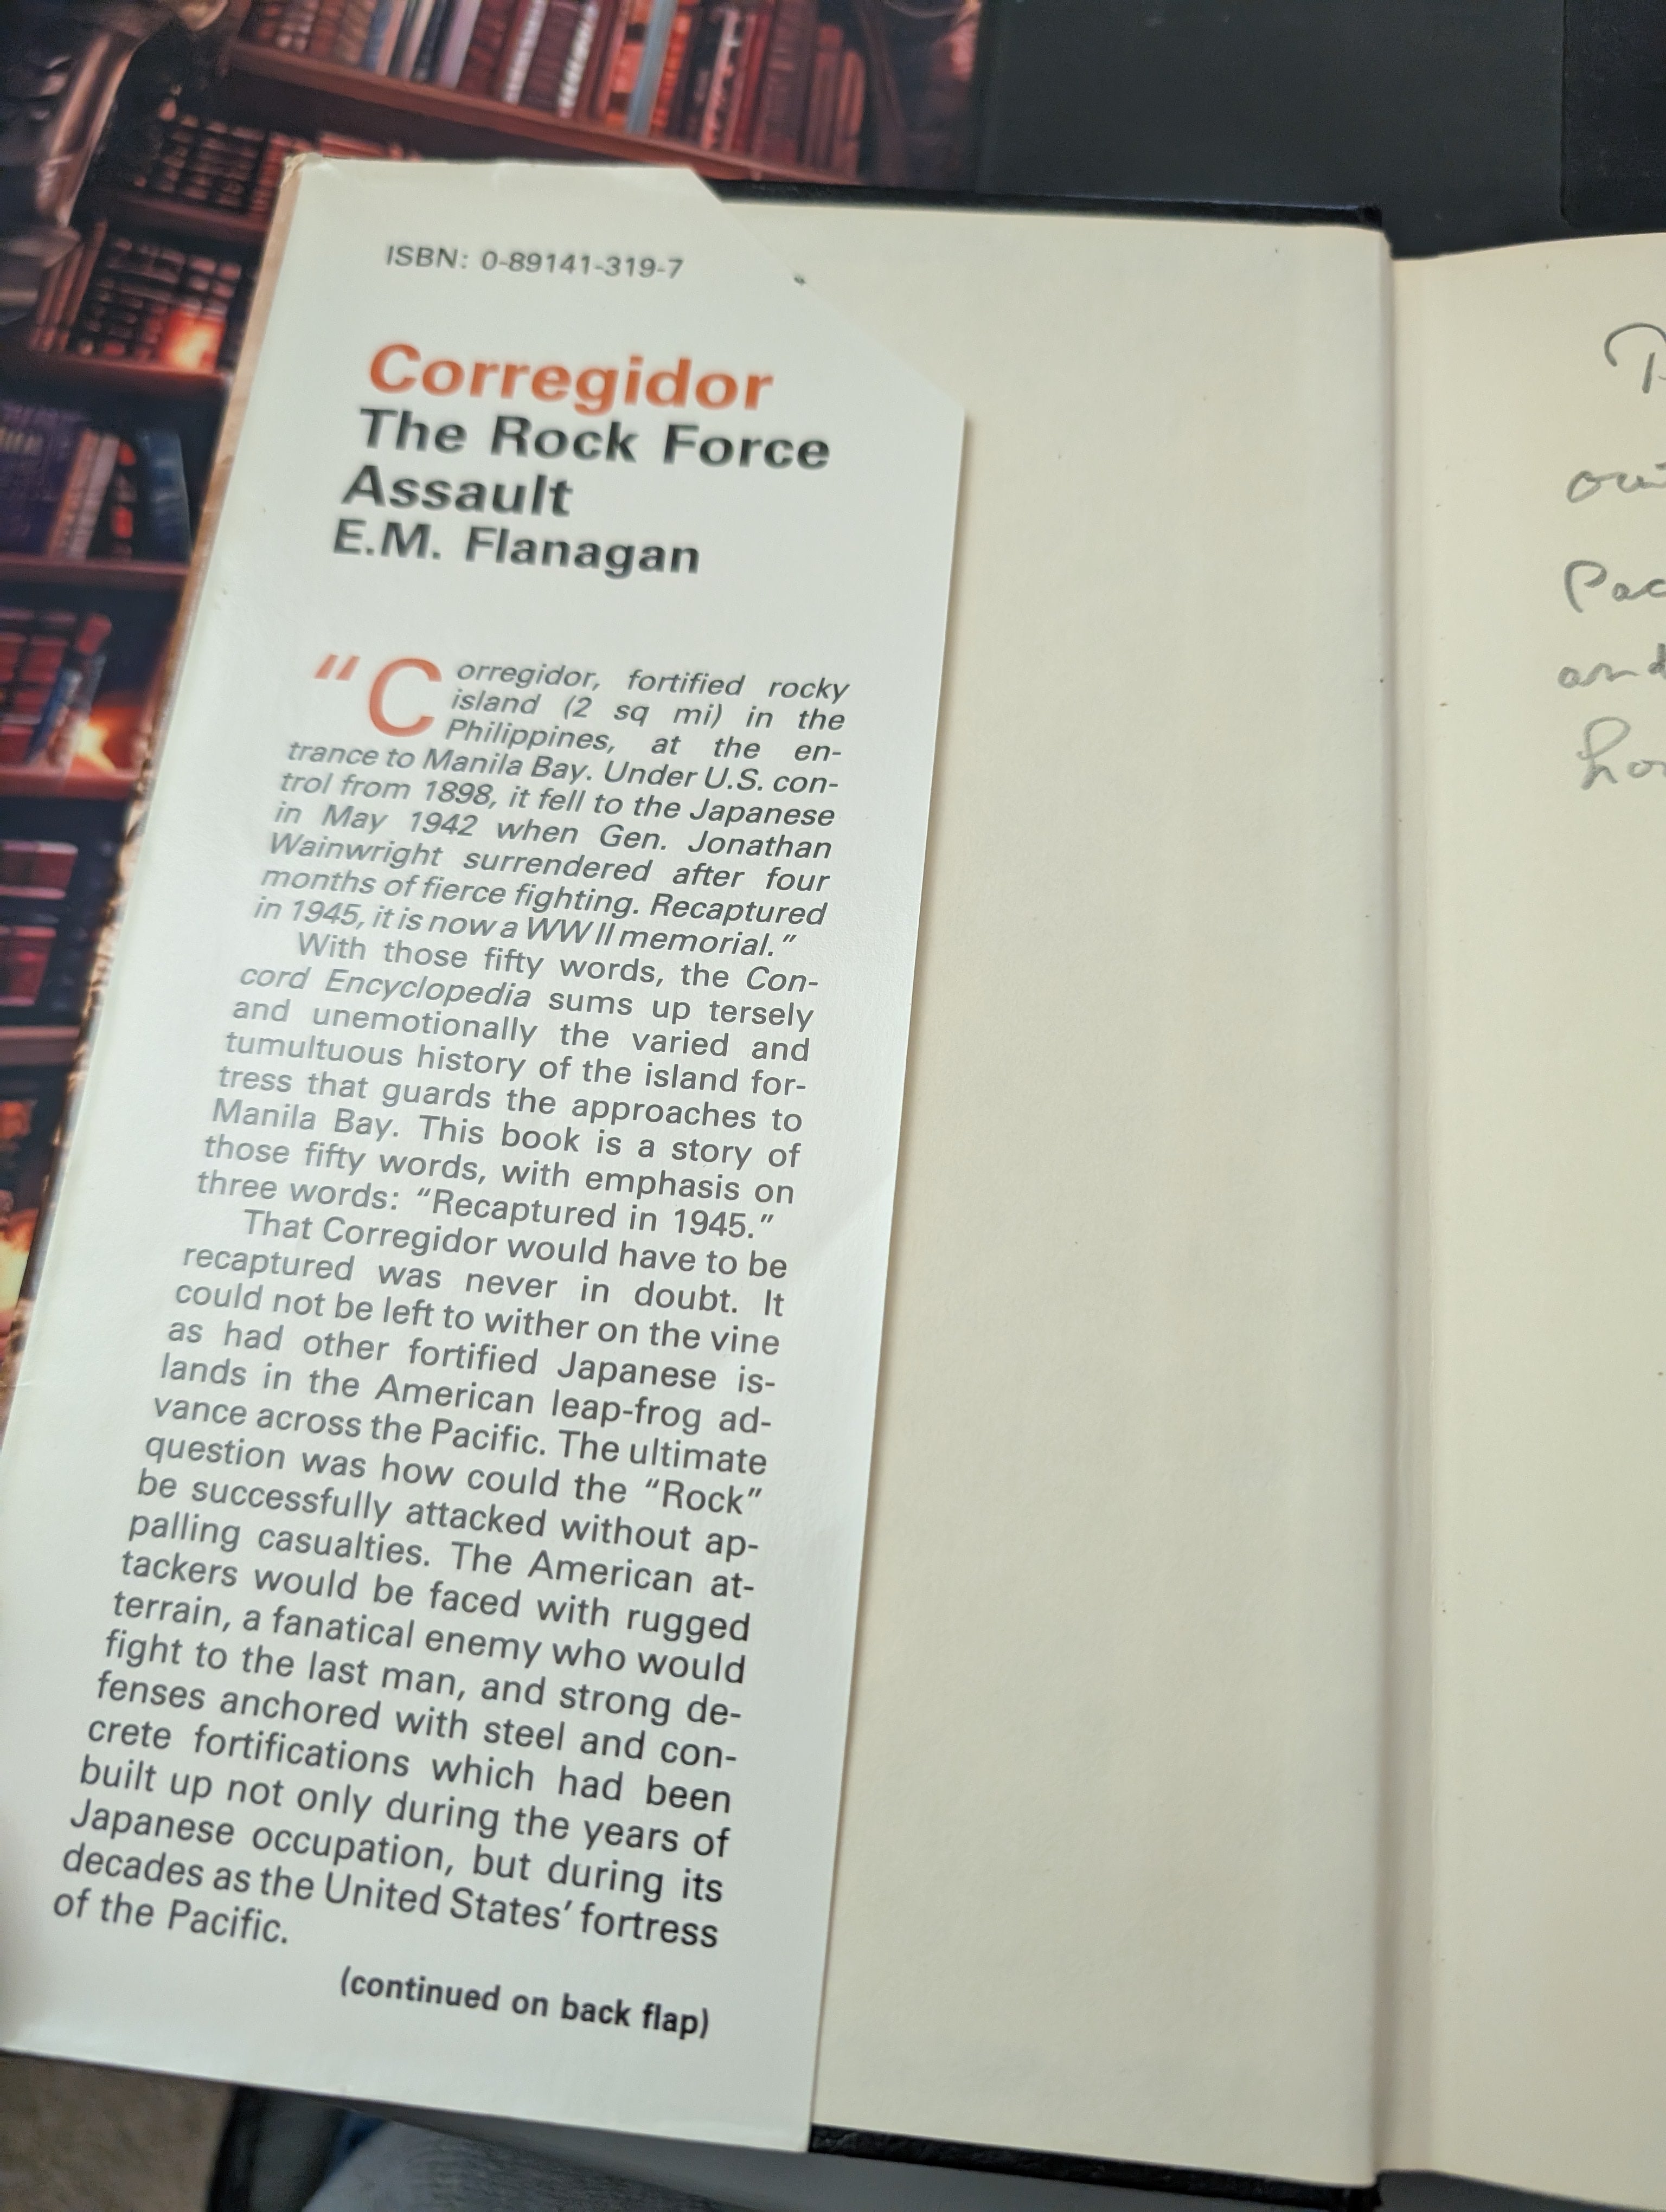 ISBN: 0-89141-319-7
Corregidor
The Rock Force
Assault
E.M. Flanagan
"Corregidor, fortified rocky
island (2 sq mi) in the
Philippines, at the en-
trance to Manila Bay. Under U.S. con-
trol from 1898, it fell to the Japanese
in May 1942 when Gen. Jonathan
Wainwright surrendered after four
months of fierce fighting. Recaptured
in 1945, it is now a WW II memorial."
With those fifty words, the Con-
cord Encyclopedia sums up tersely
and unemotionally the varied and
tumultuous history of the island for-
tress that guards the approaches to
Manila Bay. This book is a story of
those fifty words, with emphasis on
three words: "Recaptured in 1945."
That Corregidor would have to be
recaptured was never in doubt. It
could not be left to wither on the vine
as had other fortified Japanese is-
lands in the American leap-frog ad-
vance across the Pacific. The ultimate
question was how could the "Rock"
be successfully attacked without ap-
palling casualties. The American at-
tackers would be faced with rugged
terrain, a fanatical enemy who would
fight to the last man, and strong de-
fenses anchored with steel and con-
crete fortifications which had been
built up not only during the years of
Japanese occupation, but during its
decades as the United States' fortress
of the Pacific.
(continued on back flap)